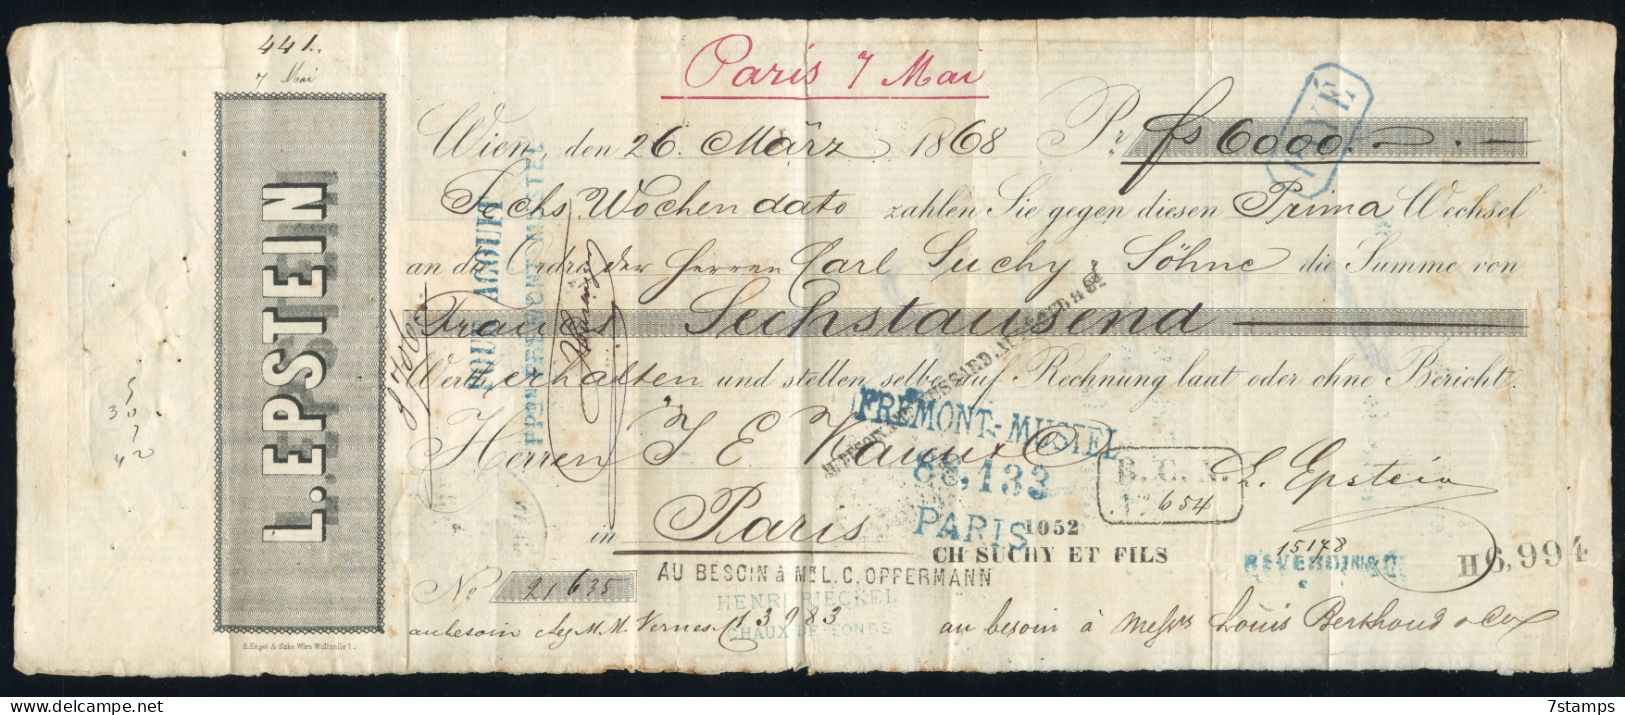 441.
7 Mai
Paris 7 Mai
Wien, den 26. März 1868 Pr. fs 6000.-
PAYÉ
Sechs Wochen dato zahlen Sie gegen diesen Prima Wechsel
an die Ordre der Herren Carl Suchy & Söhne die Summe von
Francs Sechstausend
Werth erhalten und stellen selbe auf Rechnung laut oder ohne Bericht.
Herren J E Kann & Co
in Paris
L. Epstein
L. EPSTEIN
POUR ACQUIT
PPON FREMONT-MUSTEL
FREMONT-MUSTEL
86,133
PARIS
B. C. N.
No 654
1052
CH SUCHY ET FILS
15178
REVERDIN & CIE
H6,994
No 21635
AU BESOIN à MR L. C. OPPERMANN
HENRI RIECKEL
CHAUX-DE-FONDS
au besoin chez M.M. Vernes 13983
au besoin à Messrs Louis Berthoud & Co
5
30
7
42
S. Engel & Sohn Wien Wollzeile 1.
7stamps